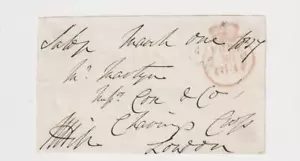 Salop March one 1837
Mr. Martyn
Messrs Cox & Co.
Charing Cross
London